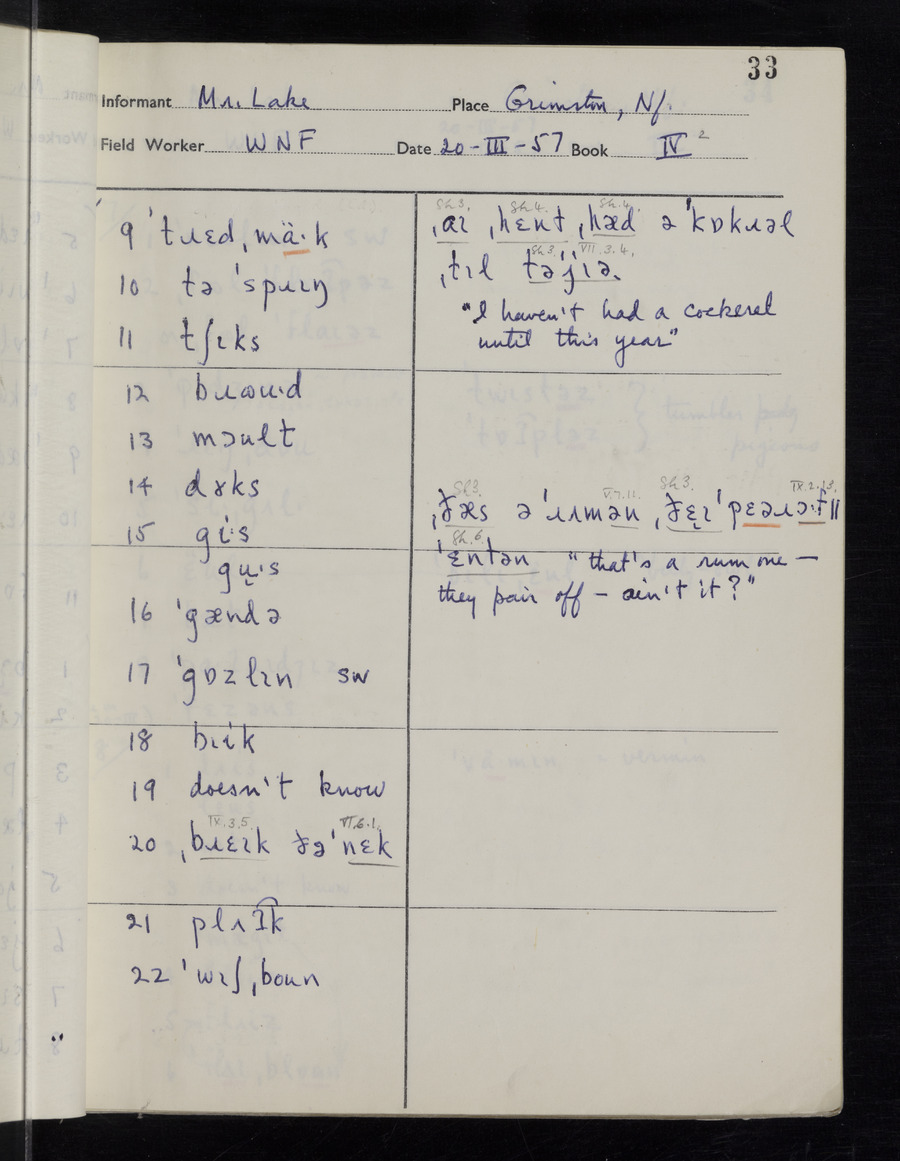 33
Informant Mr. Lake Place Grimston, Nf.
Field Worker WNF Date 20-III-57 Book IV 2
9 ˈtɹɛd,mäˑk
10 tə ˈspɹɪŋ
11 tʃɪks
12 bɹʊuˑd
13 mɔult
14 dɤks
15 giˑs
gu̟ˑs
16 ˈgændə
17 ˈgɒzlɪn SW
18 bɪik
19 doesn't know
IX.3.5. VI.6.1.
20 ˌbɹɛɪk ðəˈnɛk
21 plʌk
22 ˈwɪʃˌboun
Sh3. Sh.4. Sh.4.
ˌaɪ ˌhɛnt ˌhæd ə ˈkɒkɹəl
Sh3. VII.3.4.
ˌtɪl təˈjɪə.
"I haven't had a cockerel
until this year"
Sh3. V.7.11. Sh3. IX.2.13.
ˌðæs ə ˈɹʌmən ˌðɛɪ ˈpɛəɹɔˑf ||
Sh.6.
ˈɛntən "that's a rum one —
they pair off – ain't it?"